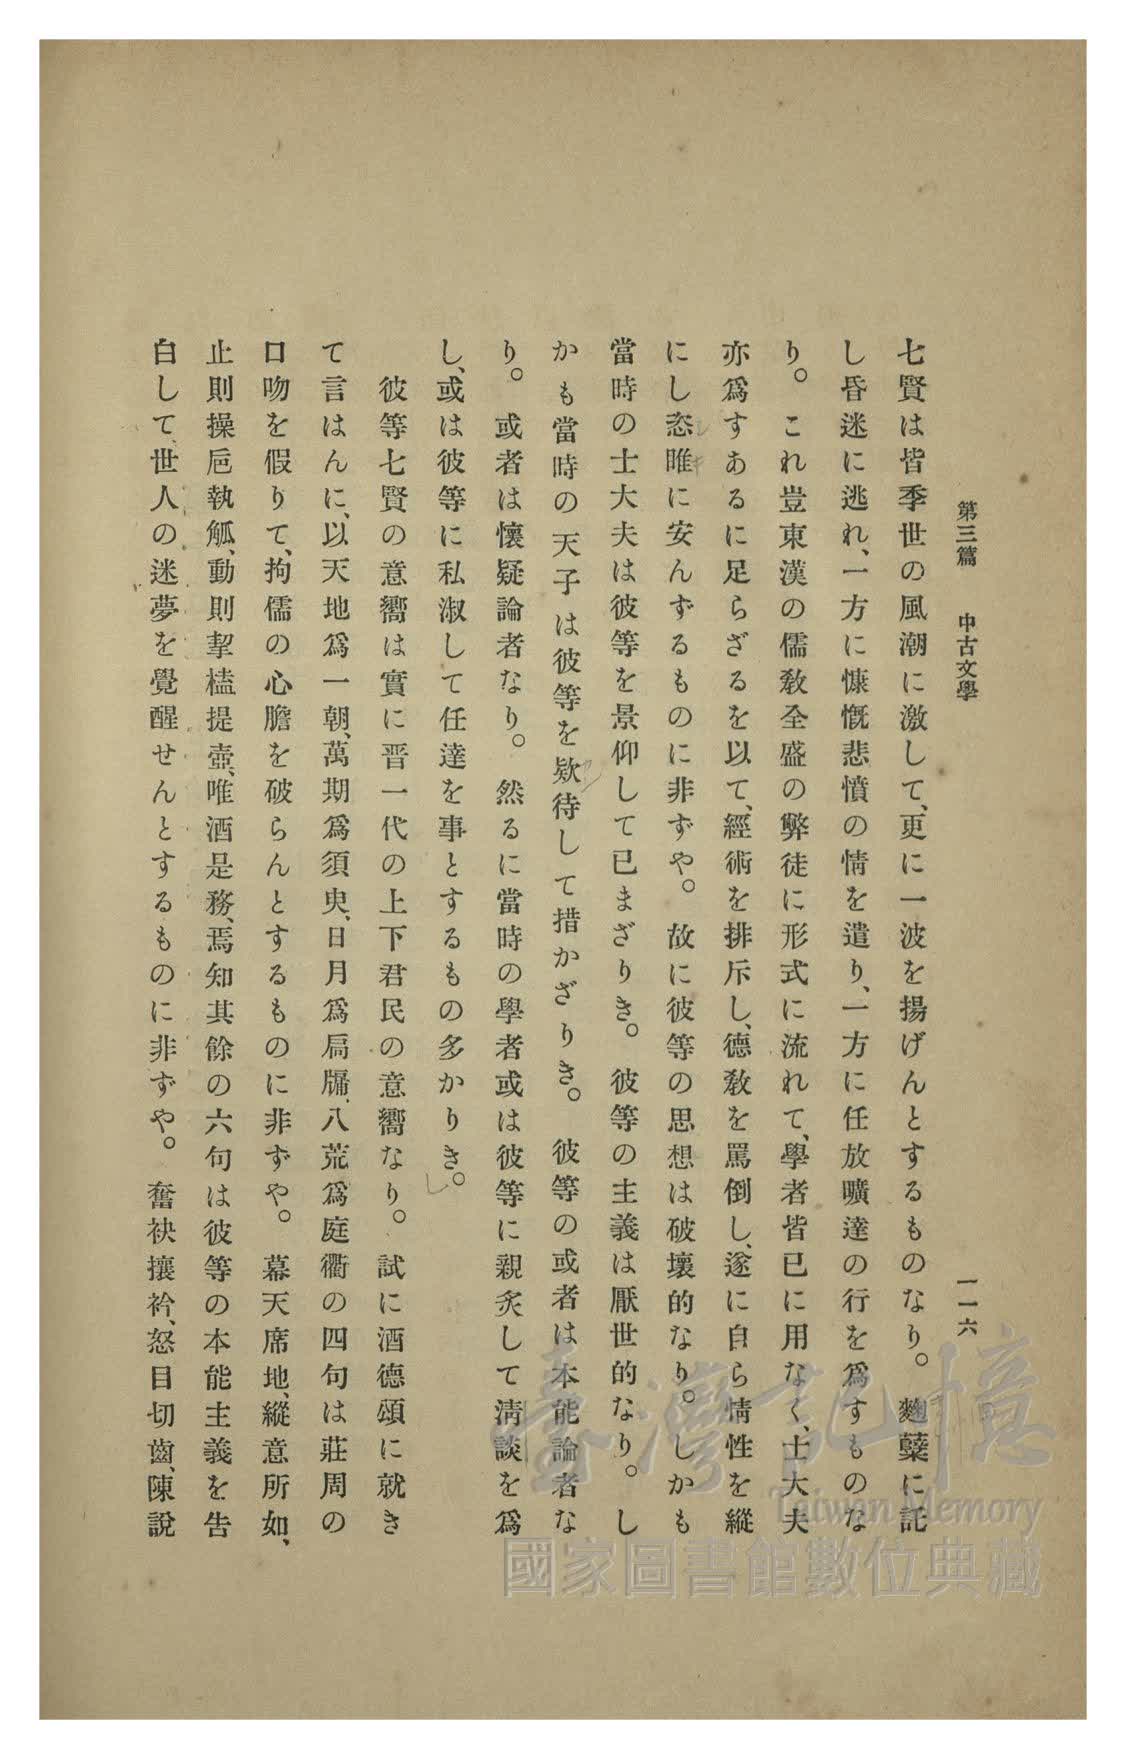 第三篇 中古文學 一一六
七賢は皆季世の風潮に激して、更に一波を揚げんとするものなり。麴蘖に託
し昏迷に逃れ、一方に慷慨悲憤の情を遣り、一方に任放曠達の行を爲すものな
り。これ豈東漢の儒敎全盛の弊徒に形式に流れて、學者皆已に用なく、士大夫
亦爲すあるに足らざるを以て、經術を排斥し、德敎を罵倒し、遂に自ら情性を縱
にし恣睢に安んずるものに非ずや。故に彼等の思想は破壞的なり。しかも
當時の士大夫は彼等を景仰して已まざりき。彼等の主義は厭世的なり。し
かも當時の天子は彼等を欵待して措かざりき。彼等の或者は本能論者な
り。或者は懷疑論者なり。然るに當時の學者或は彼等に親炙して淸談を爲
し、或は彼等に私淑して任達を事とするもの多かりき。
彼等七賢の意嚮は實に晋一代の上下君民の意嚮なり。試に酒德頌に就き
て言はんに、以天地爲一朝、萬期爲須臾、日月爲扃牖、八荒爲庭衢の四句は莊周の
口吻を假りて、拘儒の心膽を破らんとするものに非ずや。幕天席地、縱意所如、
止則操巵執觚、動則挈榼提壺、唯酒是務、焉知其餘の六句は彼等の本能主義を告
白して、世人の迷夢を覺醒せんとするものに非ずや。奮袂攘衿、怒目切齒、陳說
臺灣記憶
Taiwan Memory
國家圖書館數位典藏